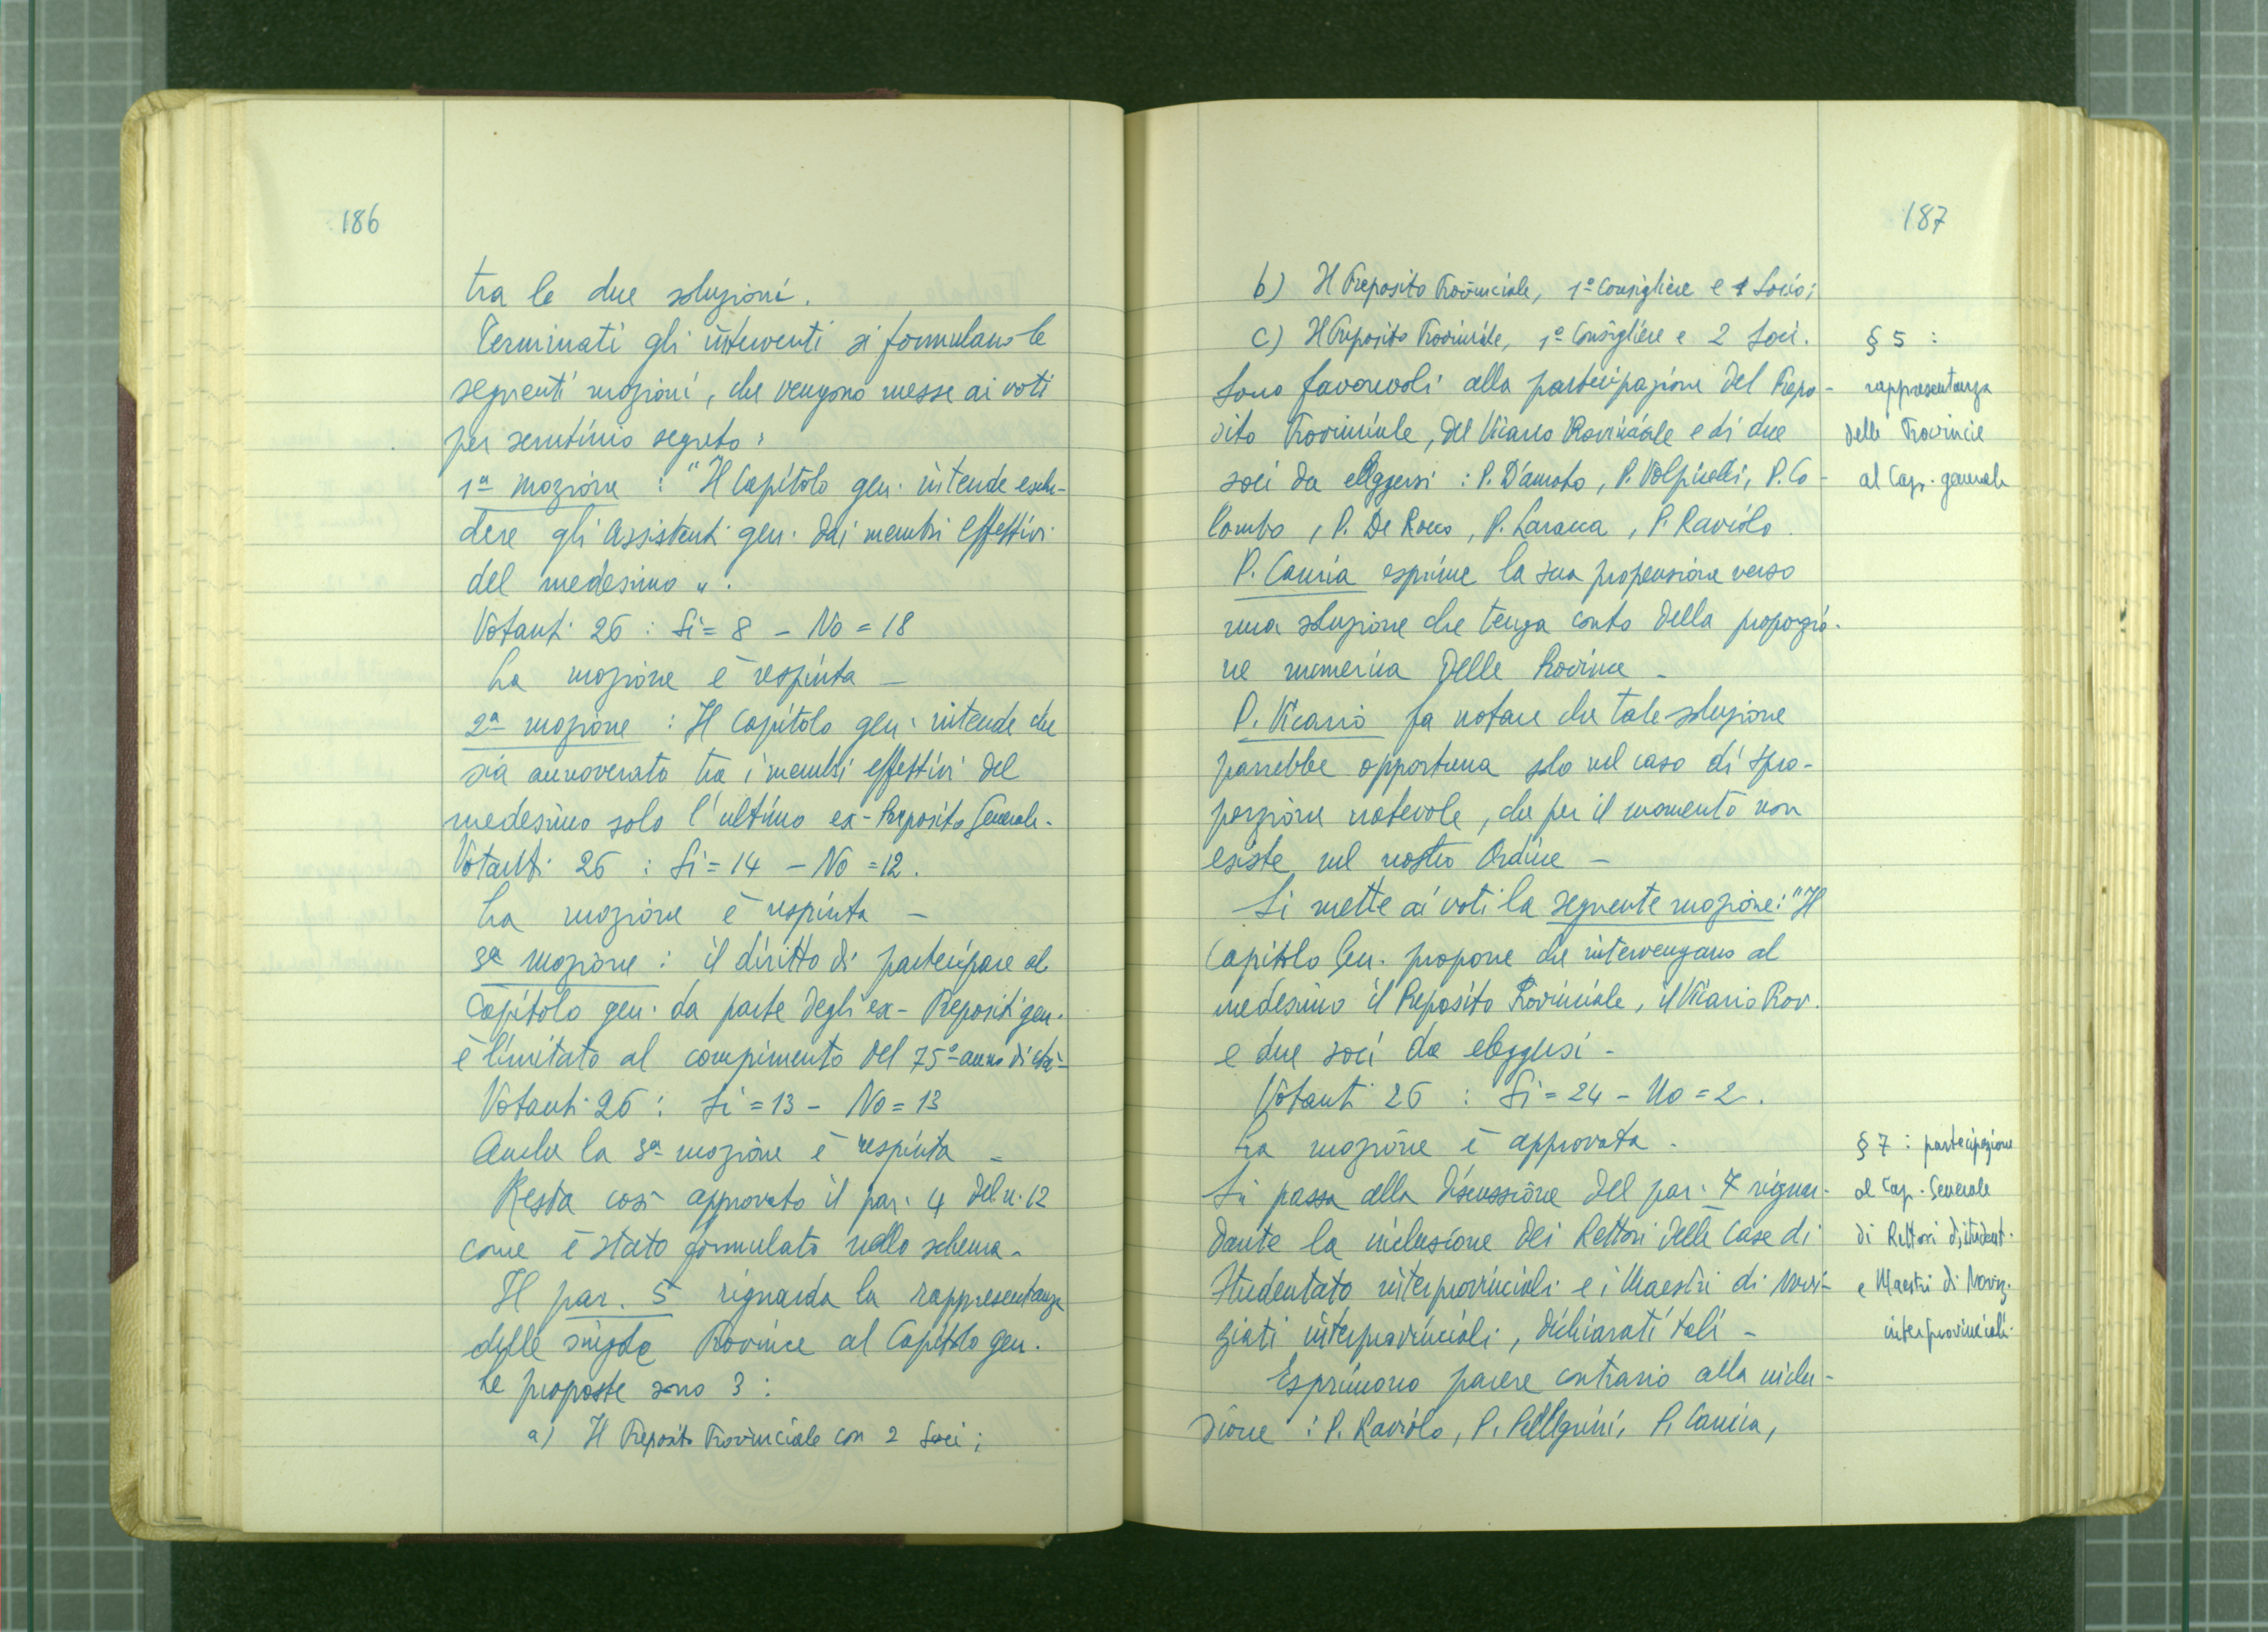 186
tra le due soluzioni.
Terminati gli interventi si formulano le
seguenti mozioni, che vengono messe ai voti
per scrutinio segreto:
1ª mozione : "Il Capitolo gen. intende esclu-
dere gli Assistenti gen. dai membri effettivi
del medesimo".
Votanti 26 : Si = 8 - No = 18
La mozione è respinta -
2ª mozione : Il Capitolo gen. intende che
sia annoverato tra i membri effettivi del
medesimo solo l'ultimo ex-Preposito Generale.
Votanti 26 : Si = 14 - No = 12.
La mozione è respinta -
3ª mozione : il diritto di partecipare al
Capitolo gen. da parte degli ex-Prepositi gen.
è limitato al compimento del 75º anno di età-
Votanti 26 : Si = 13 - No = 13
Anche la 3ª mozione è respinta -
Resta così approvato il par. 4 del n. 12
come è stato formulato nello schema.
Il par. 5 riguarda la rappresentanza
delle singole Province al Capitolo gen.
Le proposte sono 3 :
a) Il Preposito Provinciale con 2 Soci ;
187
b) Il Preposito Provinciale, 1º Consigliere e 1 Socio;
c) Il Preposito Provinciale, 1º Consigliere e 2 Soci.
Sono favorevoli alla partecipazione del Prepo-
sito Provinciale, del Vicario Provinciale e di due
soci da eleggersi : P. D'Amato, P. Volpicelli, P. Co-
lombo, P. De Rocco, P. Laracca, P. Raviolo.
P. Cauria esprime la sua propensione verso
una soluzione che tenga conto della proporzio-
ne numerica delle Province -
P. Vicario fa notare che tale soluzione
parrebbe opportuna solo nel caso di spro-
porzione notevole, che per il momento non
esiste nel nostro Ordine -
Si mette ai voti la seguente mozione: "Il
Capitolo Gen. propone che intervengano al
medesimo il Preposito Provinciale, il Vicario Prov.
e due soci da eleggersi -
Votanti 26 : Si = 24 - No = 2.
La mozione è approvata -
Si passa alla discussione del par. 7 riguar-
dante la inclusione dei Rettori delle Case di
Studentato interprovinciali e i Maestri di Novi-
ziati interprovinciali, dichiarati tali -
Esprimono parere contrario alla inclu-
sione : P. Raviolo, P. Pellegrini, P. Cauria,
§ 5 :
rappresentanza
delle Provincie
al Cap. generale
§ 7 : partecipazione
al Cap. Generale
di Rettori di student.
e Maestri di Noviz.
interprovinciali.